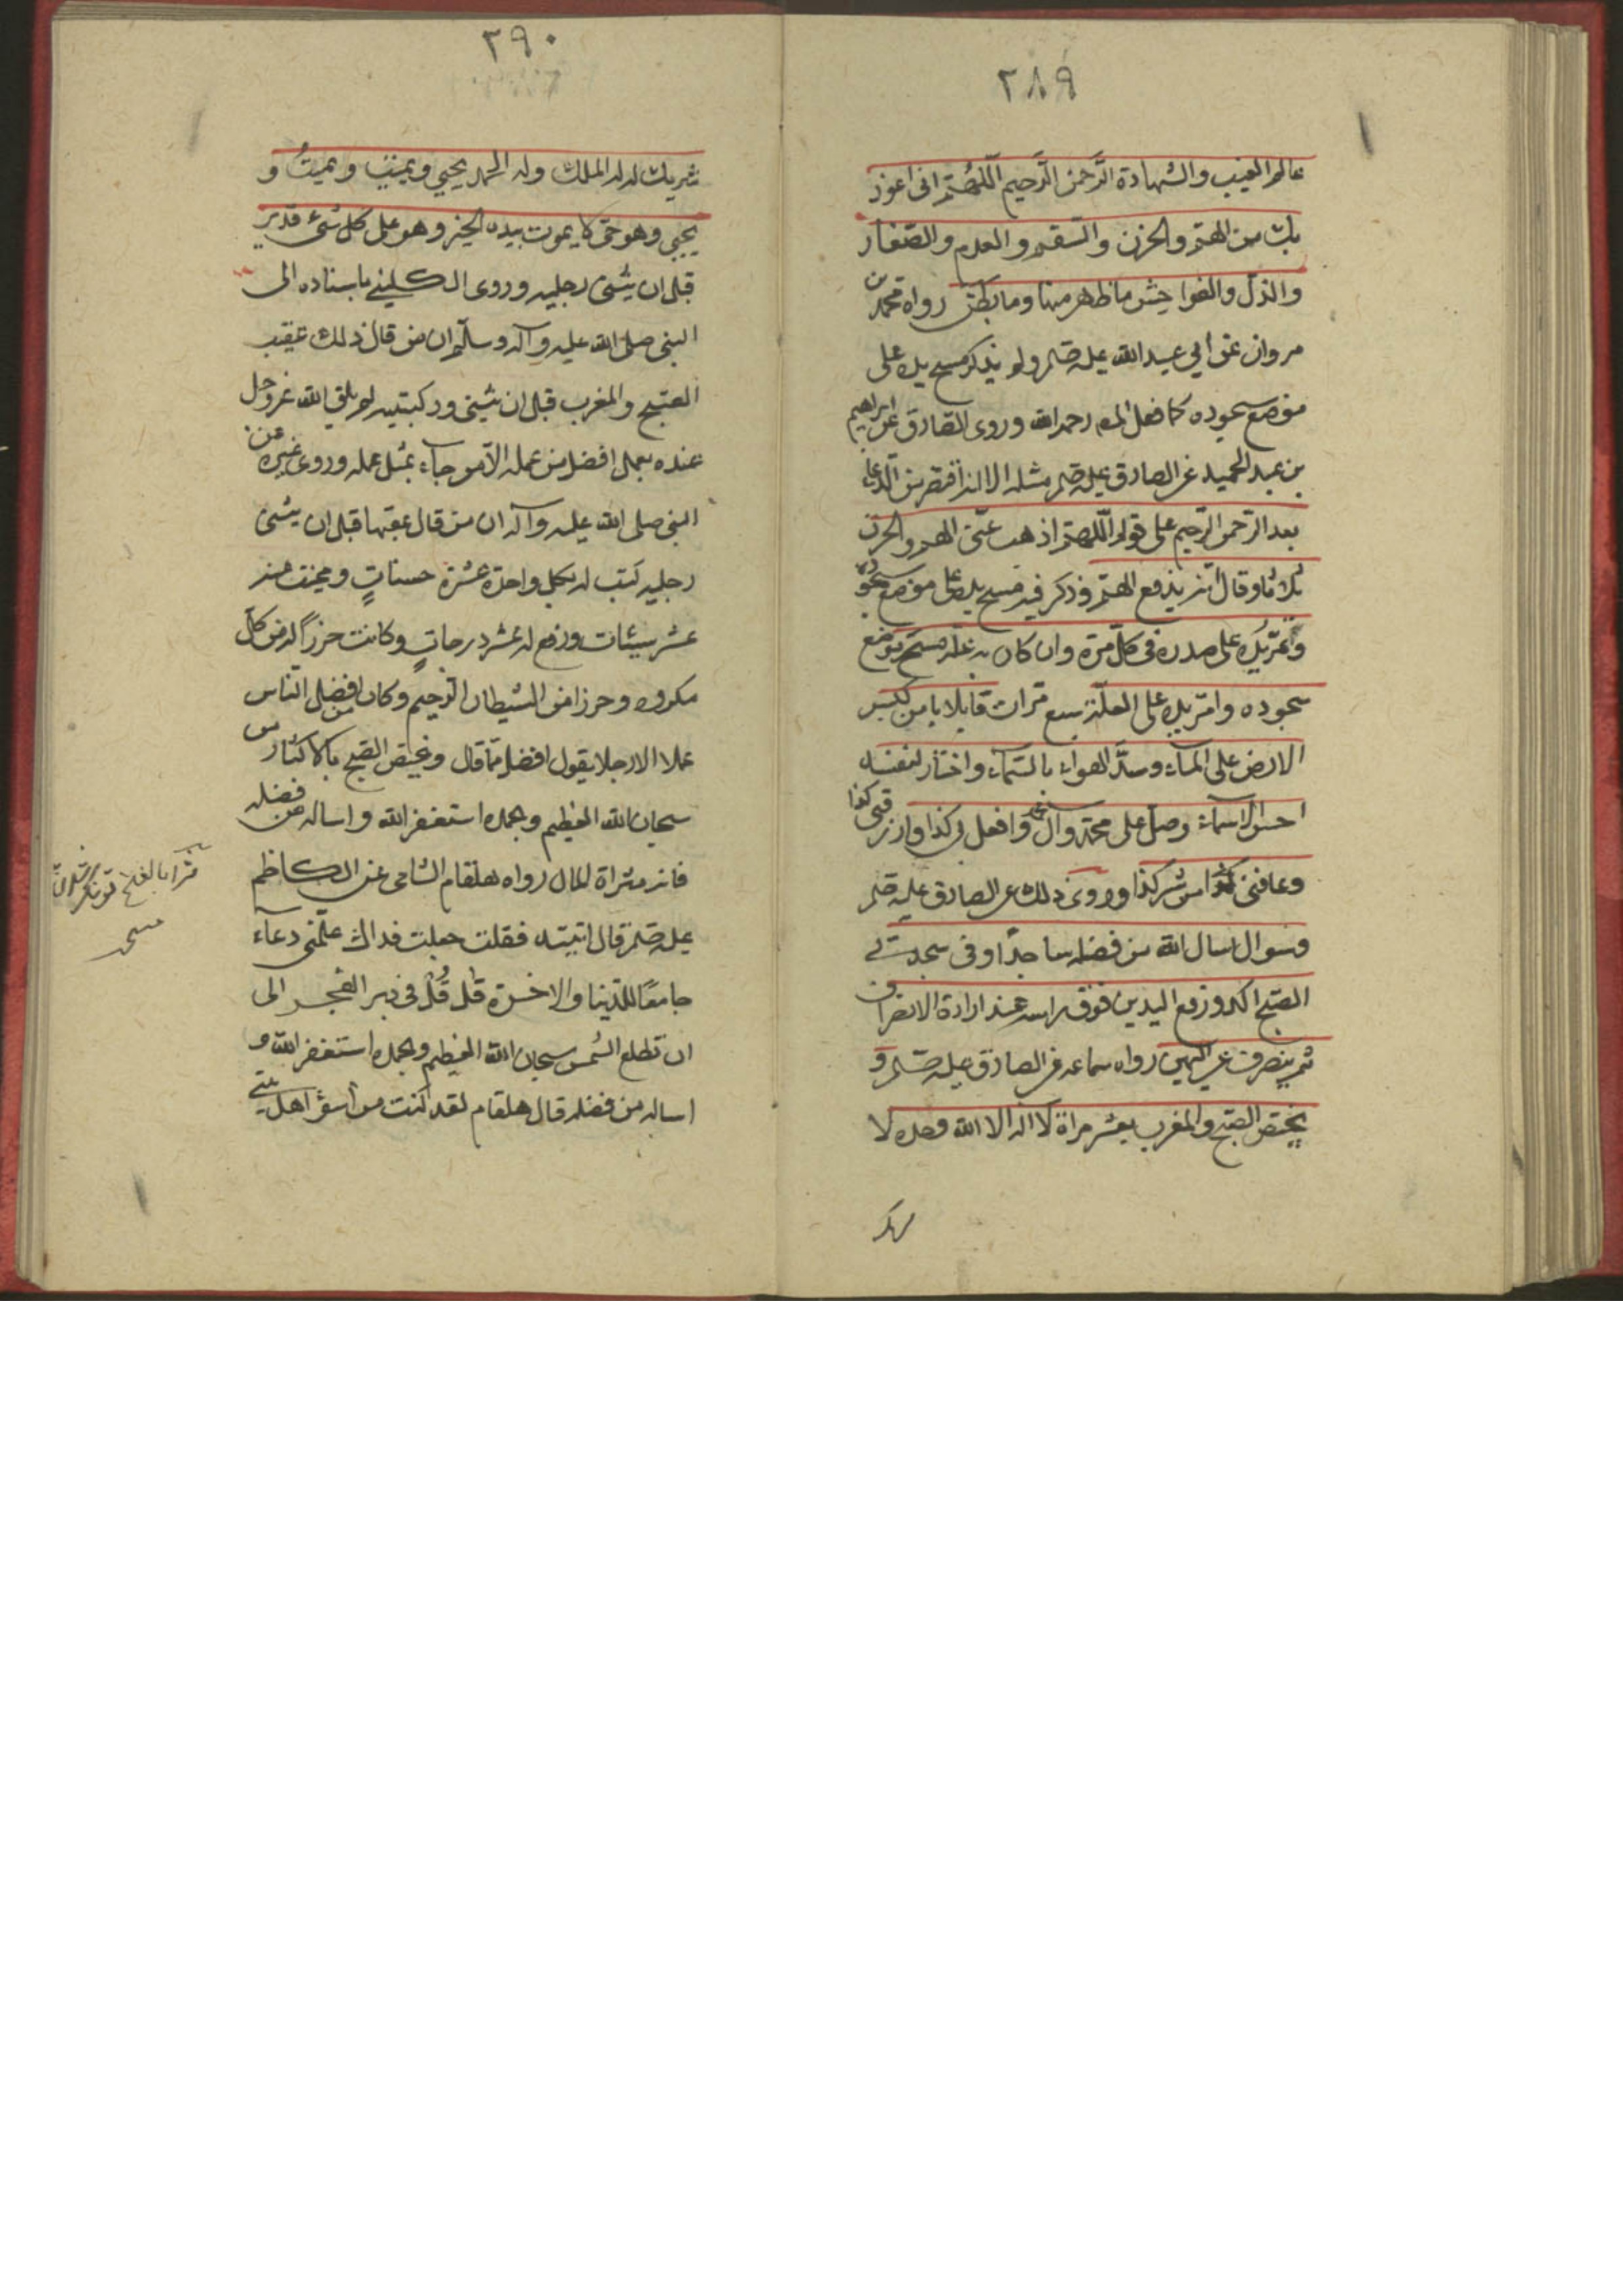 ٢٨٩
عالم الغيب والشهادة الرَّحمن الرَّحيم اللّهُمّ انى اعوذ
بك من الهمّ والحزن والسقم والعدم والصّغار
والذلّ والفواحش ما ظهر منها وما بطن رواه محمد بن
مروان عن ابي عبد الله عليه صلم ولم يذكر مسح يده على
موضع سجوده كما فعل المص رحمه الله وروى الصّادق عن ابراهيم
بن عبد الحميد عن الصادق عليه صلم مثله الا انه اقتصر من الدّعاء
بعد الرّحمن الرّحيم على قوله اللّهمّ اذهب عنّى الهم والحزن
ثلاثا وقال انه يدفع الهمّ وذكر فيه مسح يده على موضع سجوده
ويمرّ يده على صدره فى كلّ مرّة وان كان به علّة مسح موضع
سجوده وامرّ يده على العلّة سبع مرّات قايلا يا من كبس
الارض على المآء وسدّ الهواء بالسّمآء واختار لنفسه
احسن الاسمآء وصلّ على محمّد وآل محمد وافعل بى كذا وارزقنى كذا
وعافنى من شر كذا وروى ذلك عن الصادق عليه صلم
وسوال اسال الله من فضله ساجدًا وفى سجدتى
الصّبح اكد ورفع اليدين فوق راسه عند ارادة الانصراف
ثم ينصرف عن اليمين رواه سماعه عن الصادق عليه صلم و
يختصّ الصبح والمغرب بعشر مراة لا اله الا الله وحده لا
٢٩٠
شريك له له الملك وله الحمد يحيي ويميت ويميتُ و
يحيي وهو حىّ لا يموت بيده الخير وهو على كل شئ قدير
قبل ان يثنى رجليه وروى الكلينى باسناده الى
النبى صلى الله عليه وآله وسلّم ان من قال ذلك عقيب
الصّبح والمغرب قبل ان يثنى ركبتيه لم يلق الله عز وجل
عنده بعمل افضل من عمله الّا من جاء بمثل عمله وروى غيره عن
النبى صلى الله عليه وآله ان من قال عقبها قبل ان يثنى
رجليه كتب له بكل واحدة عشرة حسناتٍ ومحيت عنه
عشر سيئات ورفع له عشر درجاتٍ وكانت حرزًا له من كلّ
مكروه وحرزا من الشيطان الرّجيم وكان من افضل النّاس
عملا الا رجلا يقول افضل ممّا قال ويختص الصبح بالاكثار من
سبحان الله العظيم وبحمده استغفر الله واساله من فضله
فانه مثراة للمال رواه هلقام الشامى عن الكاظم
عليه صلم قال اتيته فقلت جعلت فداك علّمنى دعآء
جامعًا للدّنيا والاخرة قال قُل فى دبر الفجر الى
ان تطلع الشمس سبحان الله العظيم وبحمده استغفر الله و
اساله من فضله قال هلقام لقد كنت من اسوء اهل بيتى